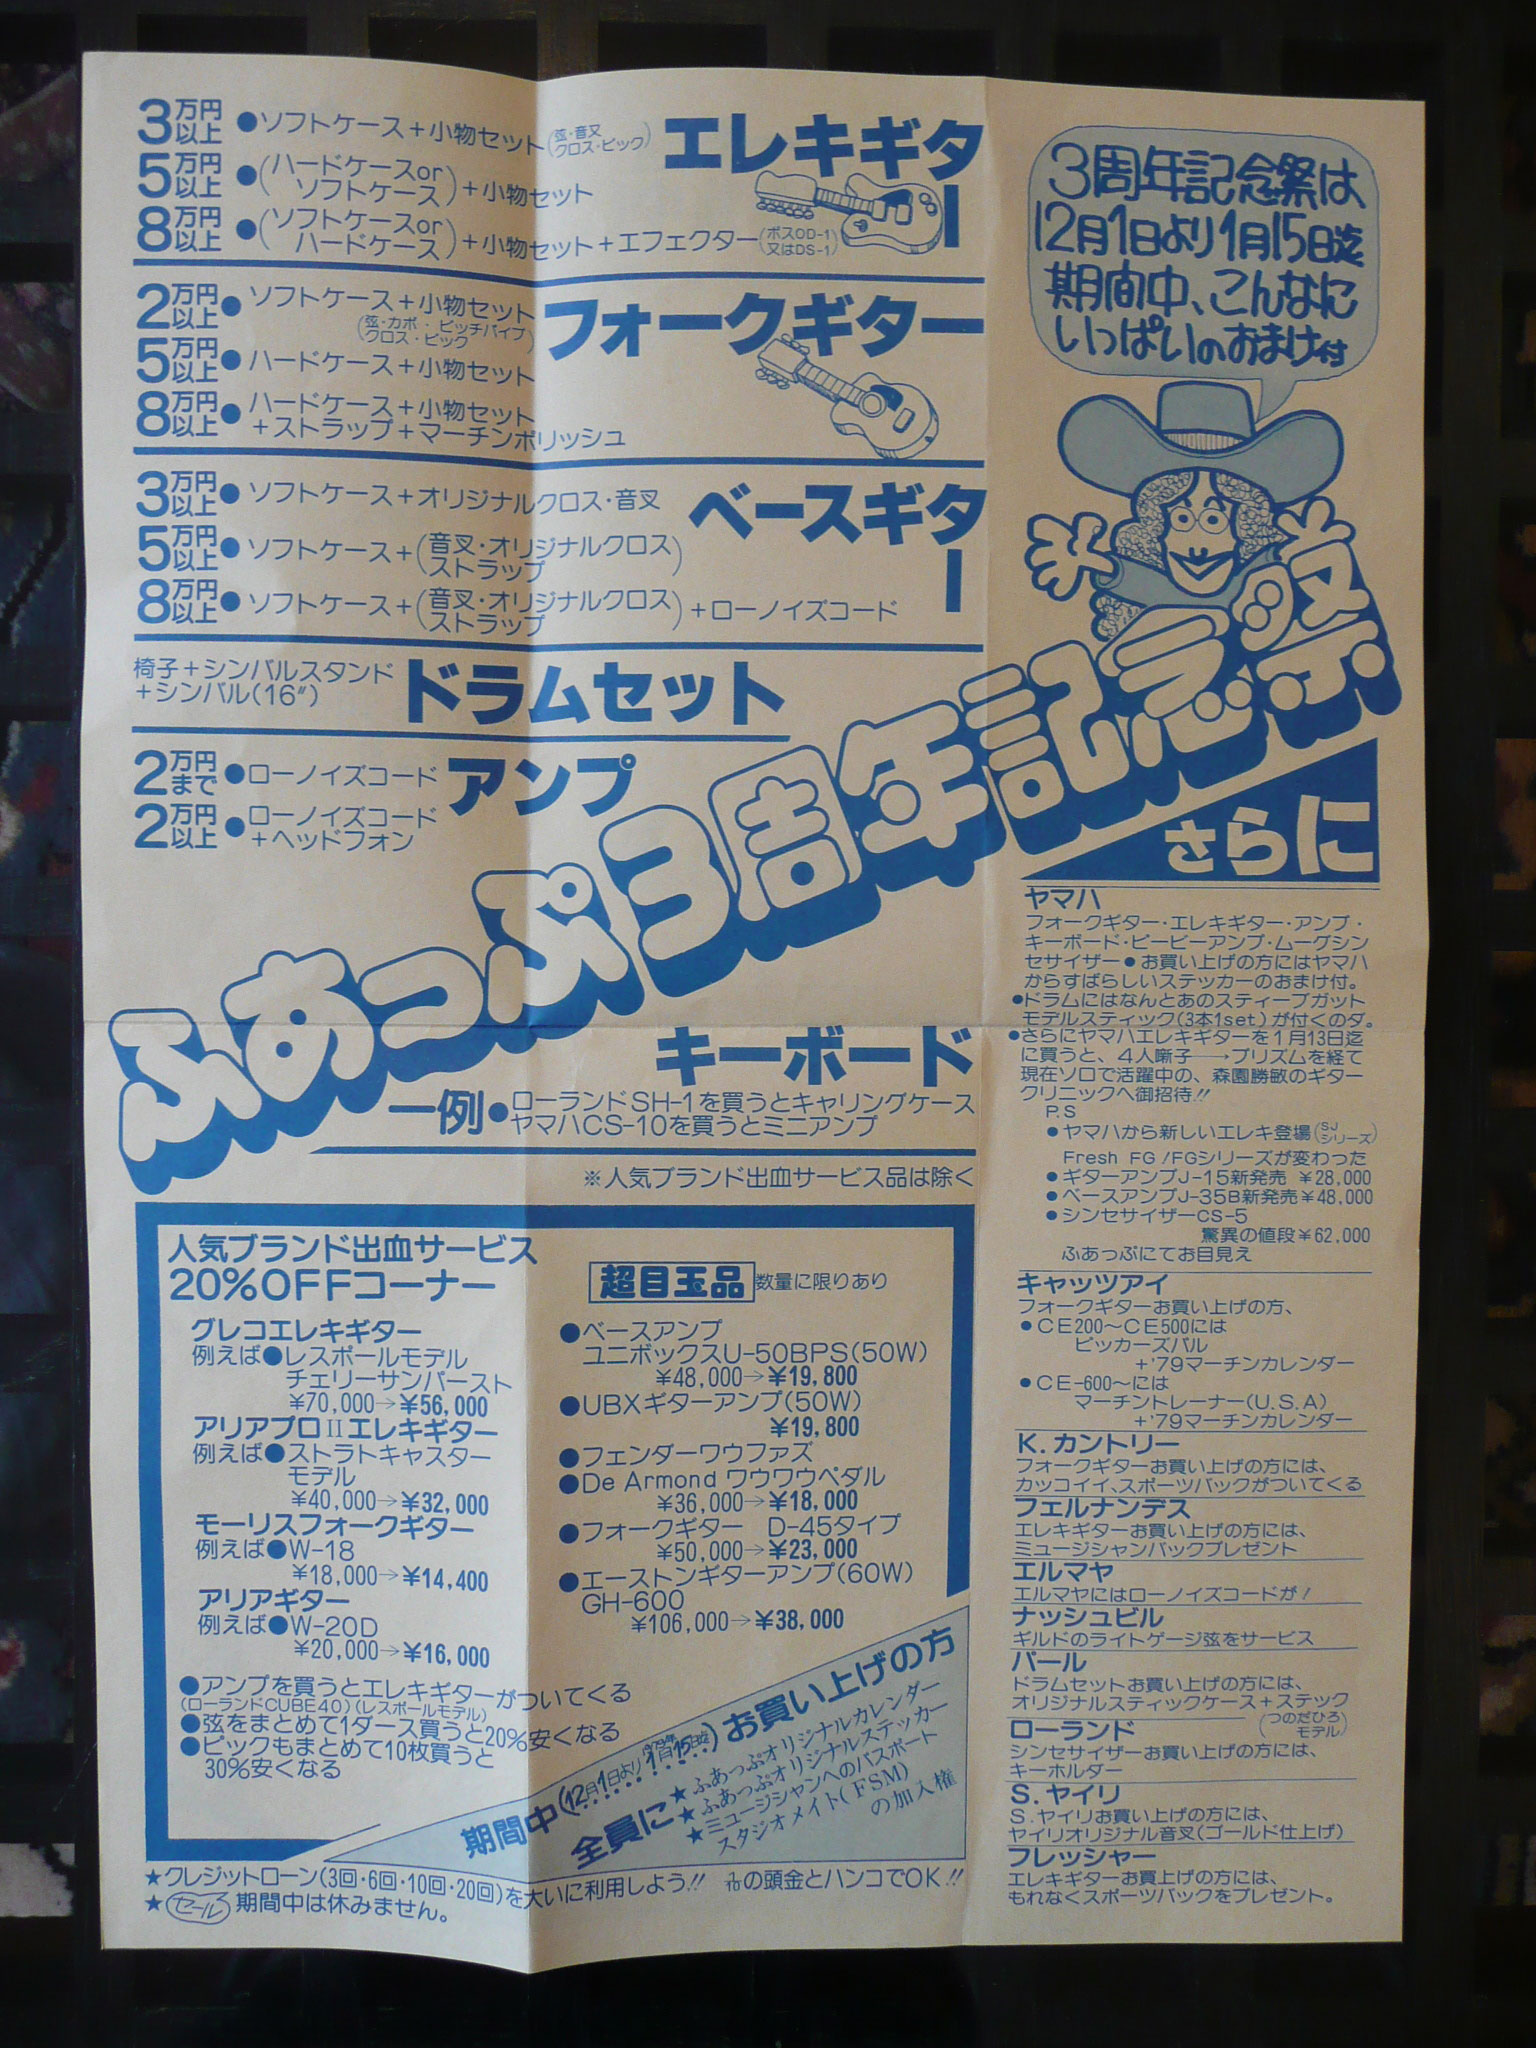 3周年記念祭は
12月1日より1月15日迄
期間中、こんなに
いっぱいのおまけ付
エレキギター
3万円以上●ソフトケース+小物セット(弦・音叉 クロス・ピック)
5万円以上●(ハードケースor ソフトケース)+小物セット
8万円以上●(ソフトケースor ハードケース)+小物セット+エフェクター(ボスOD-1 又はDS-1)
フォークギター
2万円以上●ソフトケース+小物セット(弦・カポ・ピッチパイプ クロス・ピック)
5万円以上●ハードケース+小物セット
8万円以上●ハードケース+小物セット
+ストラップ+マーチンポリッシュ
ベースギター
3万円以上●ソフトケース+オリジナルクロス・音叉
5万円以上●ソフトケース+(音叉・オリジナルクロス ストラップ)
8万円以上●ソフトケース+(音叉・オリジナルクロス ストラップ)+ローノイズコード
ドラムセット
椅子+シンバルスタンド
+シンバル(16")
アンプ
2万円まで●ローノイズコード
2万円以上●ローノイズコード
+ヘッドフォン
ふあっぷ3周年記念祭
キーボード
一例●ローランドSH-1を買うとキャリングケース
ヤマハCS-10を買うとミニアンプ
※人気ブランド出血サービス品は除く
人気ブランド出血サービス
20%OFFコーナー
グレコエレキギター
例えば●レスポールモデル
チェリーサンバースト
¥70,000→¥56,000
アリアプロⅡエレキギター
例えば●ストラトキャスター
モデル
¥40,000→¥32,000
モーリスフォークギター
例えば●W-18
¥18,000→¥14,400
アリアギター
例えば●W-20D
¥20,000→¥16,000
●アンプを買うとエレキギターがついてくる
(ローランドCUBE40)(レスポールモデル)
●弦をまとめて1ダース買うと20%安くなる
●ピックもまとめて10枚買うと
30%安くなる
超目玉品 数量に限りあり
●ベースアンプ
ユニボックスU-50BPS(50W)
¥48,000→¥19,800
●UBXギターアンプ(50W)
¥19,800
●フェンダーワウファズ
●De Armondワウワウペダル
¥36,000→¥18,000
●フォークギター D-45タイプ
¥50,000→¥23,000
●エーストンギターアンプ(60W)
GH-600
¥106,000→¥38,000
期間中(12月1日より1月15日迄)お買い上げの方
全員に★ふあっぷオリジナルカレンダー
★ふあっぷオリジナルステッカー
★ミュージシャンへのパスポート
スタジオメイト(FSM)
の加入権
★クレジットローン(3回・6回・10回・20回)を大いに利用しよう!! の頭金とハンコでOK!!
★セール期間中は休みません。
さらに
ヤマハ
フォークギター・エレキギター・アンプ・
キーボード・ピービーアンプ・ムーグシン
セサイザー●お買い上げの方にはヤマハ
からすばらしいステッカーのおまけ付。
●ドラムにはなんとあのスティーブガット
モデルスティック(3本1set)が付くのダ。
●さらにヤマハエレキギターを1月13日迄
に買うと、4人囃子→プリズムを経て
現在ソロで活躍中の、森園勝敏のギター
クリニックへ御招待!!
P.S
●ヤマハから新しいエレキ登場(SJ シリーズ)
Fresh FG!FGシリーズが変わった
●ギターアンプJ-15新発売 ¥28,000
●ベースアンプJ-35B新発売¥48,000
●シンセサイザーCS-5
驚異の値段¥62,000
ふあっぷにてお目見え
キャッツアイ
フォークギターお買い上げの方、
●CE200〜CE500には
ピッカーズバル
+'79マーチンカレンダー
●CE-600〜には
マーチントレーナー(U.S.A)
+'79マーチンカレンダー
K.カントリー
フォークギターお買い上げの方には、
カッコイイ、スポーツバックがついてくる
フェルナンデス
エレキギターお買い上げの方には、
ミュージシャンバックプレゼント
エルマヤ
エルマヤにはローノイズコードが!
ナッシュビル
ギルドのライトゲージ弦をサービス
パール
ドラムセットお買い上げの方には、
オリジナルスティックケース+ステック
(つのだひろ モデル)
ローランド
シンセサイザーお買い上げの方には、
キーホルダー
S.ヤイリ
S.ヤイリお買い上げの方には、
ヤイリオリジナル音叉(ゴールド仕上げ)
フレッシャー
エレキギターお買上げの方には、
もれなくスポーツバックをプレゼント。